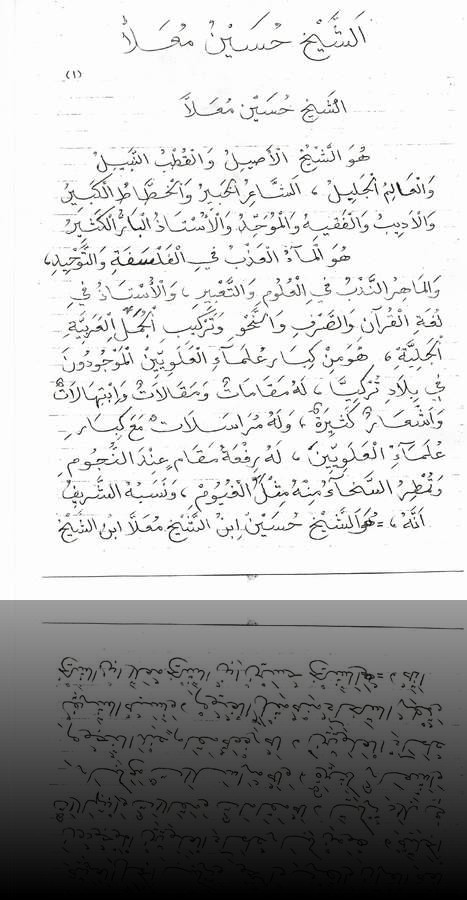 اَلشَّيْخ حُسَيْنْ مُعَـلاَّ
(١)
الشَّيخ حُسَيْن مُعَـلاَّ
هُوَ الشَّيْخُ الأَصِيلُ وَالْقُطْبُ النَّبِيلُ
وَالْعَالِمُ الْجَلِيلُ ، الشَّاعِرُ الْخَبِيرُ وَالْخَطَّاطُ الْكَبِيرُ
وَالأَدِيبُ وَالْفَقِيهُ وَالْمُوَحِّدُ وَالأُسْتَاذُ الْبَارُّ الْكَثِيرُ
هُوَ الْمَآءُ الْعَذْبُ فِي الْفَلْسَفَةِ وَالتَّوْحِيدِ،
وَالْمَاهِرُ النَّدْبُ فِي الْعُلُومِ وَالتَّعْبِيرِ ، وَالأُسْتَاذُ فِي
لُغَةِ الْقُرْآنِ وَالصَّرْفِ وَالنَّحْوِ وَتَرْكِيبِ الْجُمَلِ الْعَرَبِيَّةِ
الْجَلِيَّةِ ، هُوَ مِنْ كِبَارِ عُلَمَآءِ الْعَلَوِيِّينَ الْمَوْجُودُونَ
فِي بِلاَدِ تُرْكِيَّا ، لَهُ مَقَامَاتٌ وَمَقَالاَتٌ وَابْتِهَالاَتٌ
وَأَشْعَارٌ كَثِيرَةٌ ، وَلَهُ مُرَاسَلاَتٌ مَعَ كِبَارِ
عُلَمَآءِ الْعَلَوِيِّينَ ، لَهُ رِفْعَةُ مَقَامٍ عِنْدَ النُّجُومِ
وَتُمْطِرُ السَّخَآءَ مِنْهُ مِثْلَ الْغُيُومِ ، وَنَسَبُهُ الشَّرِيفُ
اَنَّهُ ، = هُوَ الشَّيْخْ حُسَيْنْ اِبنُ الشَّيْخ مُعَلاَّ ابنُ الشَّيْخ